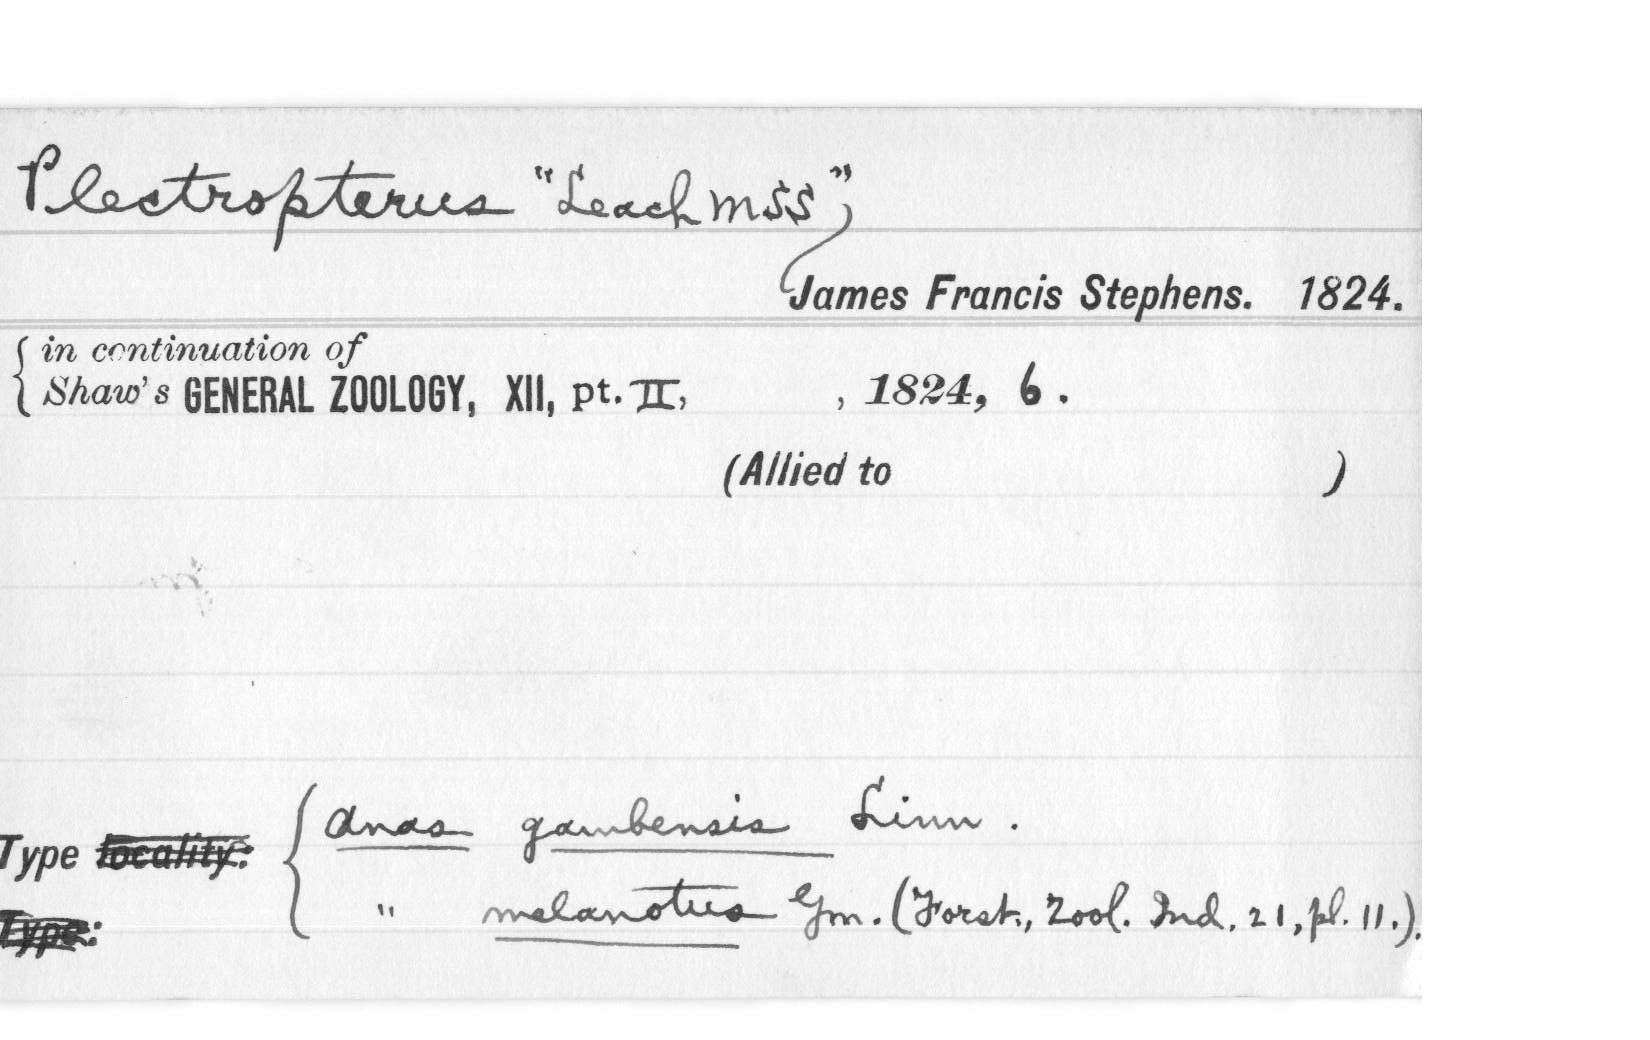 Plectropterus "Leach MSS",
James Francis Stephens. 1824.
in continuation of
Shaw's GENERAL ZOOLOGY, XII, pt. II, , 1824, 6.
(Allied to )
Type locality: { Anas gambensis Linn.
Type: " melanotus Gm. (Forst., Zool. Ind. 21, pl. 11.).